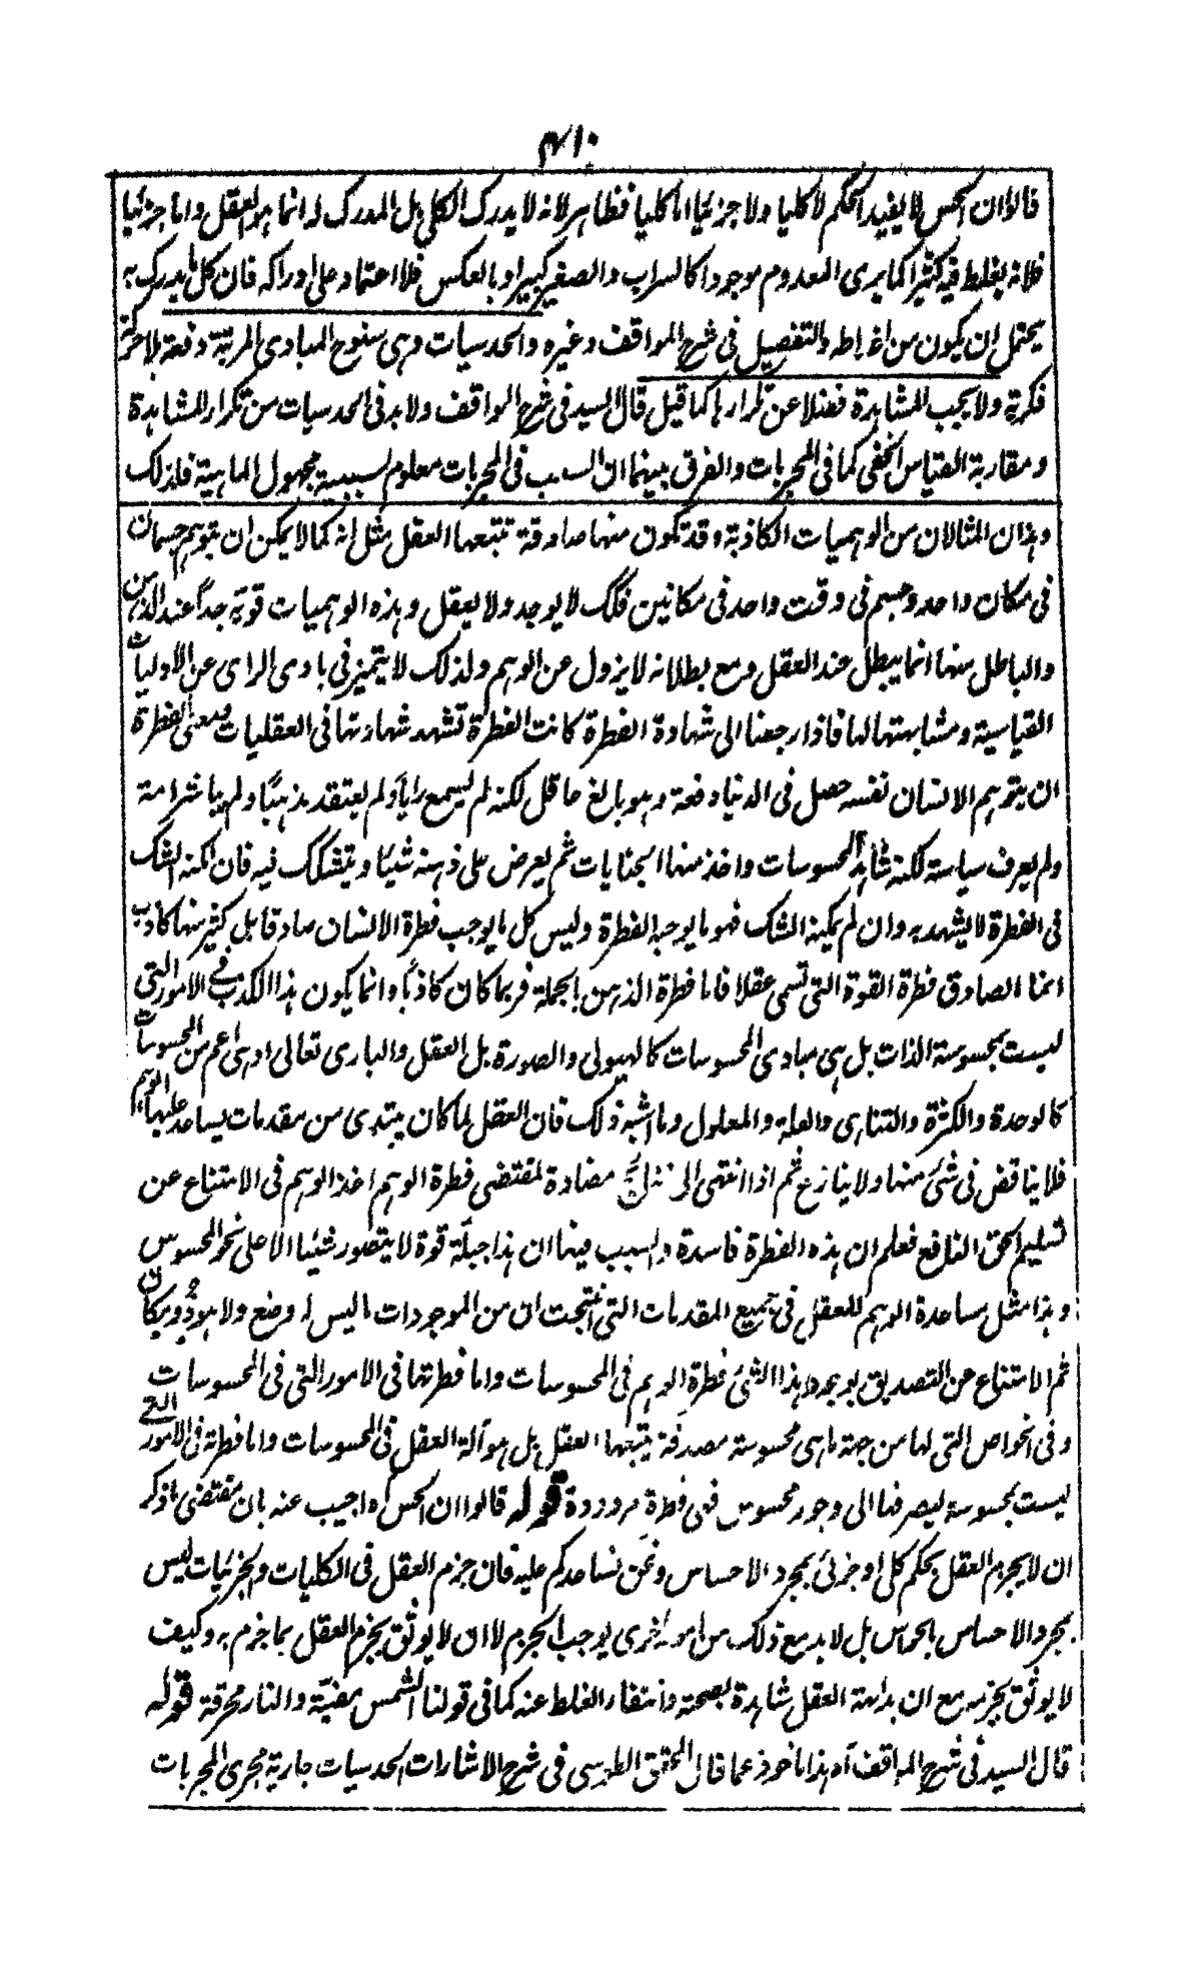 ۴۱۰
قالوا ان الحس لا يفيد الحكم لا كليا ولا جزئيا اما كليا فظاهر لانه لا يدرك الكلى بل المدرك له انما هو العقل واما جزئيا
فلانه يغلط فيه كثيرا كما يرى المعدوم موجودا كالسراب والصغير كبيرا وبالعكس فلا اعتماد على ادراكه فان كل ما يدرك به
يحتمل ان يكون من اغلاطه والتفصيل فى شرح المواقف وغيره والحدسيات وهى سنوح المبادى المرتبة دفعة بلا حركة
فكرية ولا يجب المشاهدة فضلا عن تكرارها كما قيل قال السيد فى شرح المواقف ولا بد فى الحدسيات من تكرار المشاهدة
ومقارنة القياس الخفى كما فى المجربات والفرق بينهما ان السبب فى المجربات معلوم السببية مجهول الماهية فلذلك
وهذان المثالان من الوهميات الكاذبة وقد تكون منها صادقة تتبعها العقل مثل انه كما لا يمكن ان يتوهم جسمان
فى مكان واحد وجسم فى وقت واحد فى مكانين فكذلك لا يوجد ولا يعقل وهذه الوهميات قوية جداً عند الذهن
والباطل منها انما يبطل عند العقل ومع بطلانه لا يزول عن الوهم ولذلك لا يتميز فى بادى الراى عن الاوليات
القياسية ومشابهتها لها فاذا رجعنا الى شهادة الفطرة كانت الفطرة تشهد شهادتها فى العقليات ومعنى الفطرة
ان يتوهم الانسان نفسه حصل فى الدنيا دفعة وهو بالغ عاقل لكنه لم يسمع راياً ولم يعتقد مذهباً ولم يعاشر امة
ولم يعرف سياسة لكنه شاهد المحسوسات واخذ منها الجنايات ثم يعرض على ذهنه شيئا ويتشكك فيه فان امكنه الشك
فى الفطرة لا يشهد به وان لم يمكنه الشك فهو ما يوجبه الفطرة وليس كل ما يوجب فطرة الانسان صادقا بل كثير منها كاذب
انما الصادق فطرة القوة التى تسمى عقلا فاما فطرة الذهن بالجملة فربما كان كاذباً وانما يكون هذا الكذب فى الامور التى
ليست بمحسوسة الذات بل هى مبادى المحسوسات كالهيولى والصورة بل العقل والبارى تعالى او هى اعم من المحسوسات
كالوحدة والكثرة والتناهى والعلة والمعلول وما اشبه ذلك فان العقل لما كان يبتدى من مقدمات يساعد عليها الوهم
فلا يناقض فى شئ منها ولا ينازع ثم اذا انتهى الى مضادة لمقتضى فطرة الوهم اخذ الوهم فى الامتناع عن
تسليم الحق النافع فعلم ان هذه الفطرة فاسدة والسبب فيها ان هذا جبلّة قوة لا يتصور شيئا الا على نحو المحسوس
وهذا مثل مساعدة الوهم للعقل فى جميع المقدمات التى انتجت ان من الموجودات ما ليس له وضع ولا هو ذو مكان
ثم الامتناع عن التصديق بوجود هذا الشئ فطرة الوهم فى المحسوسات واما فطرتها فى الامور التى فى المحسوسات
وفى الخواص التى لها من جهة ما هى محسوسة مصدقة يتبعها العقل بل هو آلة العقل فى المحسوسات واما فطرته فى الامور التى
ليست بمحسوسة ليصرفها الى وجود محسوس فهى فطرة مردودة قوله قالوا ان الحس آه واجيب عنه بان مقتضى ما ذكر
ان لا يجزم العقل بحكم كلى او جزئى بمجرد الاحساس ونحن نساعدكم عليه فان جزم العقل فى الكليات والجزئيات ليس
بمجرد الاحساس بالحواس بل لا بد مع ذلك من امور اخرى يوجب الجزم لا ان لا يوثق بجزم العقل بما جزم به وكيف
لا يوثق بجزمه مع ان بداهة العقل شاهدة بصحته وانتفاء الغلط عنه كما فى قولنا الشمس مضيئة والنار محرقة قوله
قال السيد فى شرح المواقف آه هذا ماخوذ عما قال المحقق الطوسى فى شرح الاشارات الحدسيات جارية مجرى المجربات